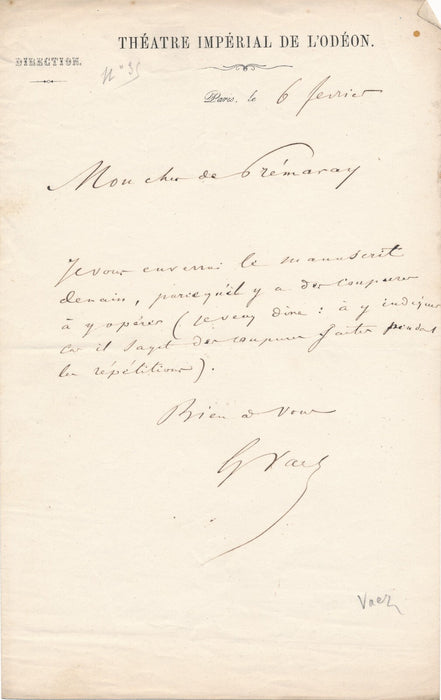 THÉATRE IMPÉRIAL DE L'ODÉON.
DIRECTION.
N° 35
Paris, le 6 fevrier
Mon cher de Prémaray
Je vous enverrai le manuscrit
demain, parcequ'il y a des coupures
à y opérer (je veux dire : à y indiquer
car il s'agit des coupures faites pendant
les répétitions).
Bien à vous
G Vaez
Vaez